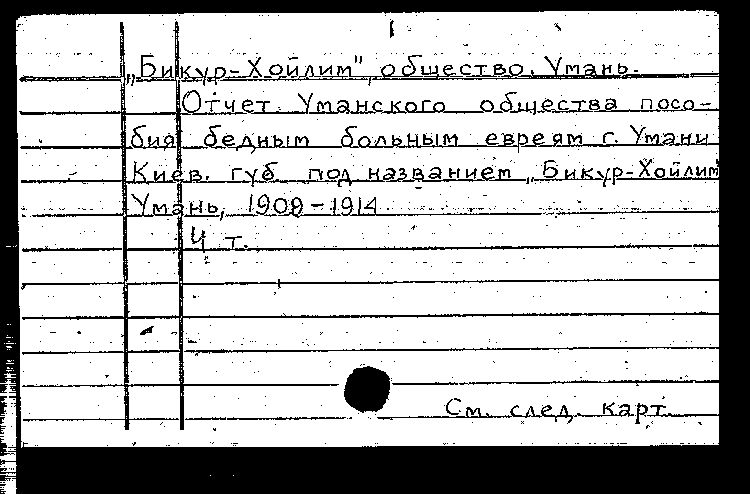 „Бикур-Хойлим", общество. Умань.
Отчет Уманского общества посо-
бия бедным больным евреям г. Умани
Киев. губ. под названием „Бикур-Хойлим
Умань, 1908-1914
4 т.
См. след. карт.